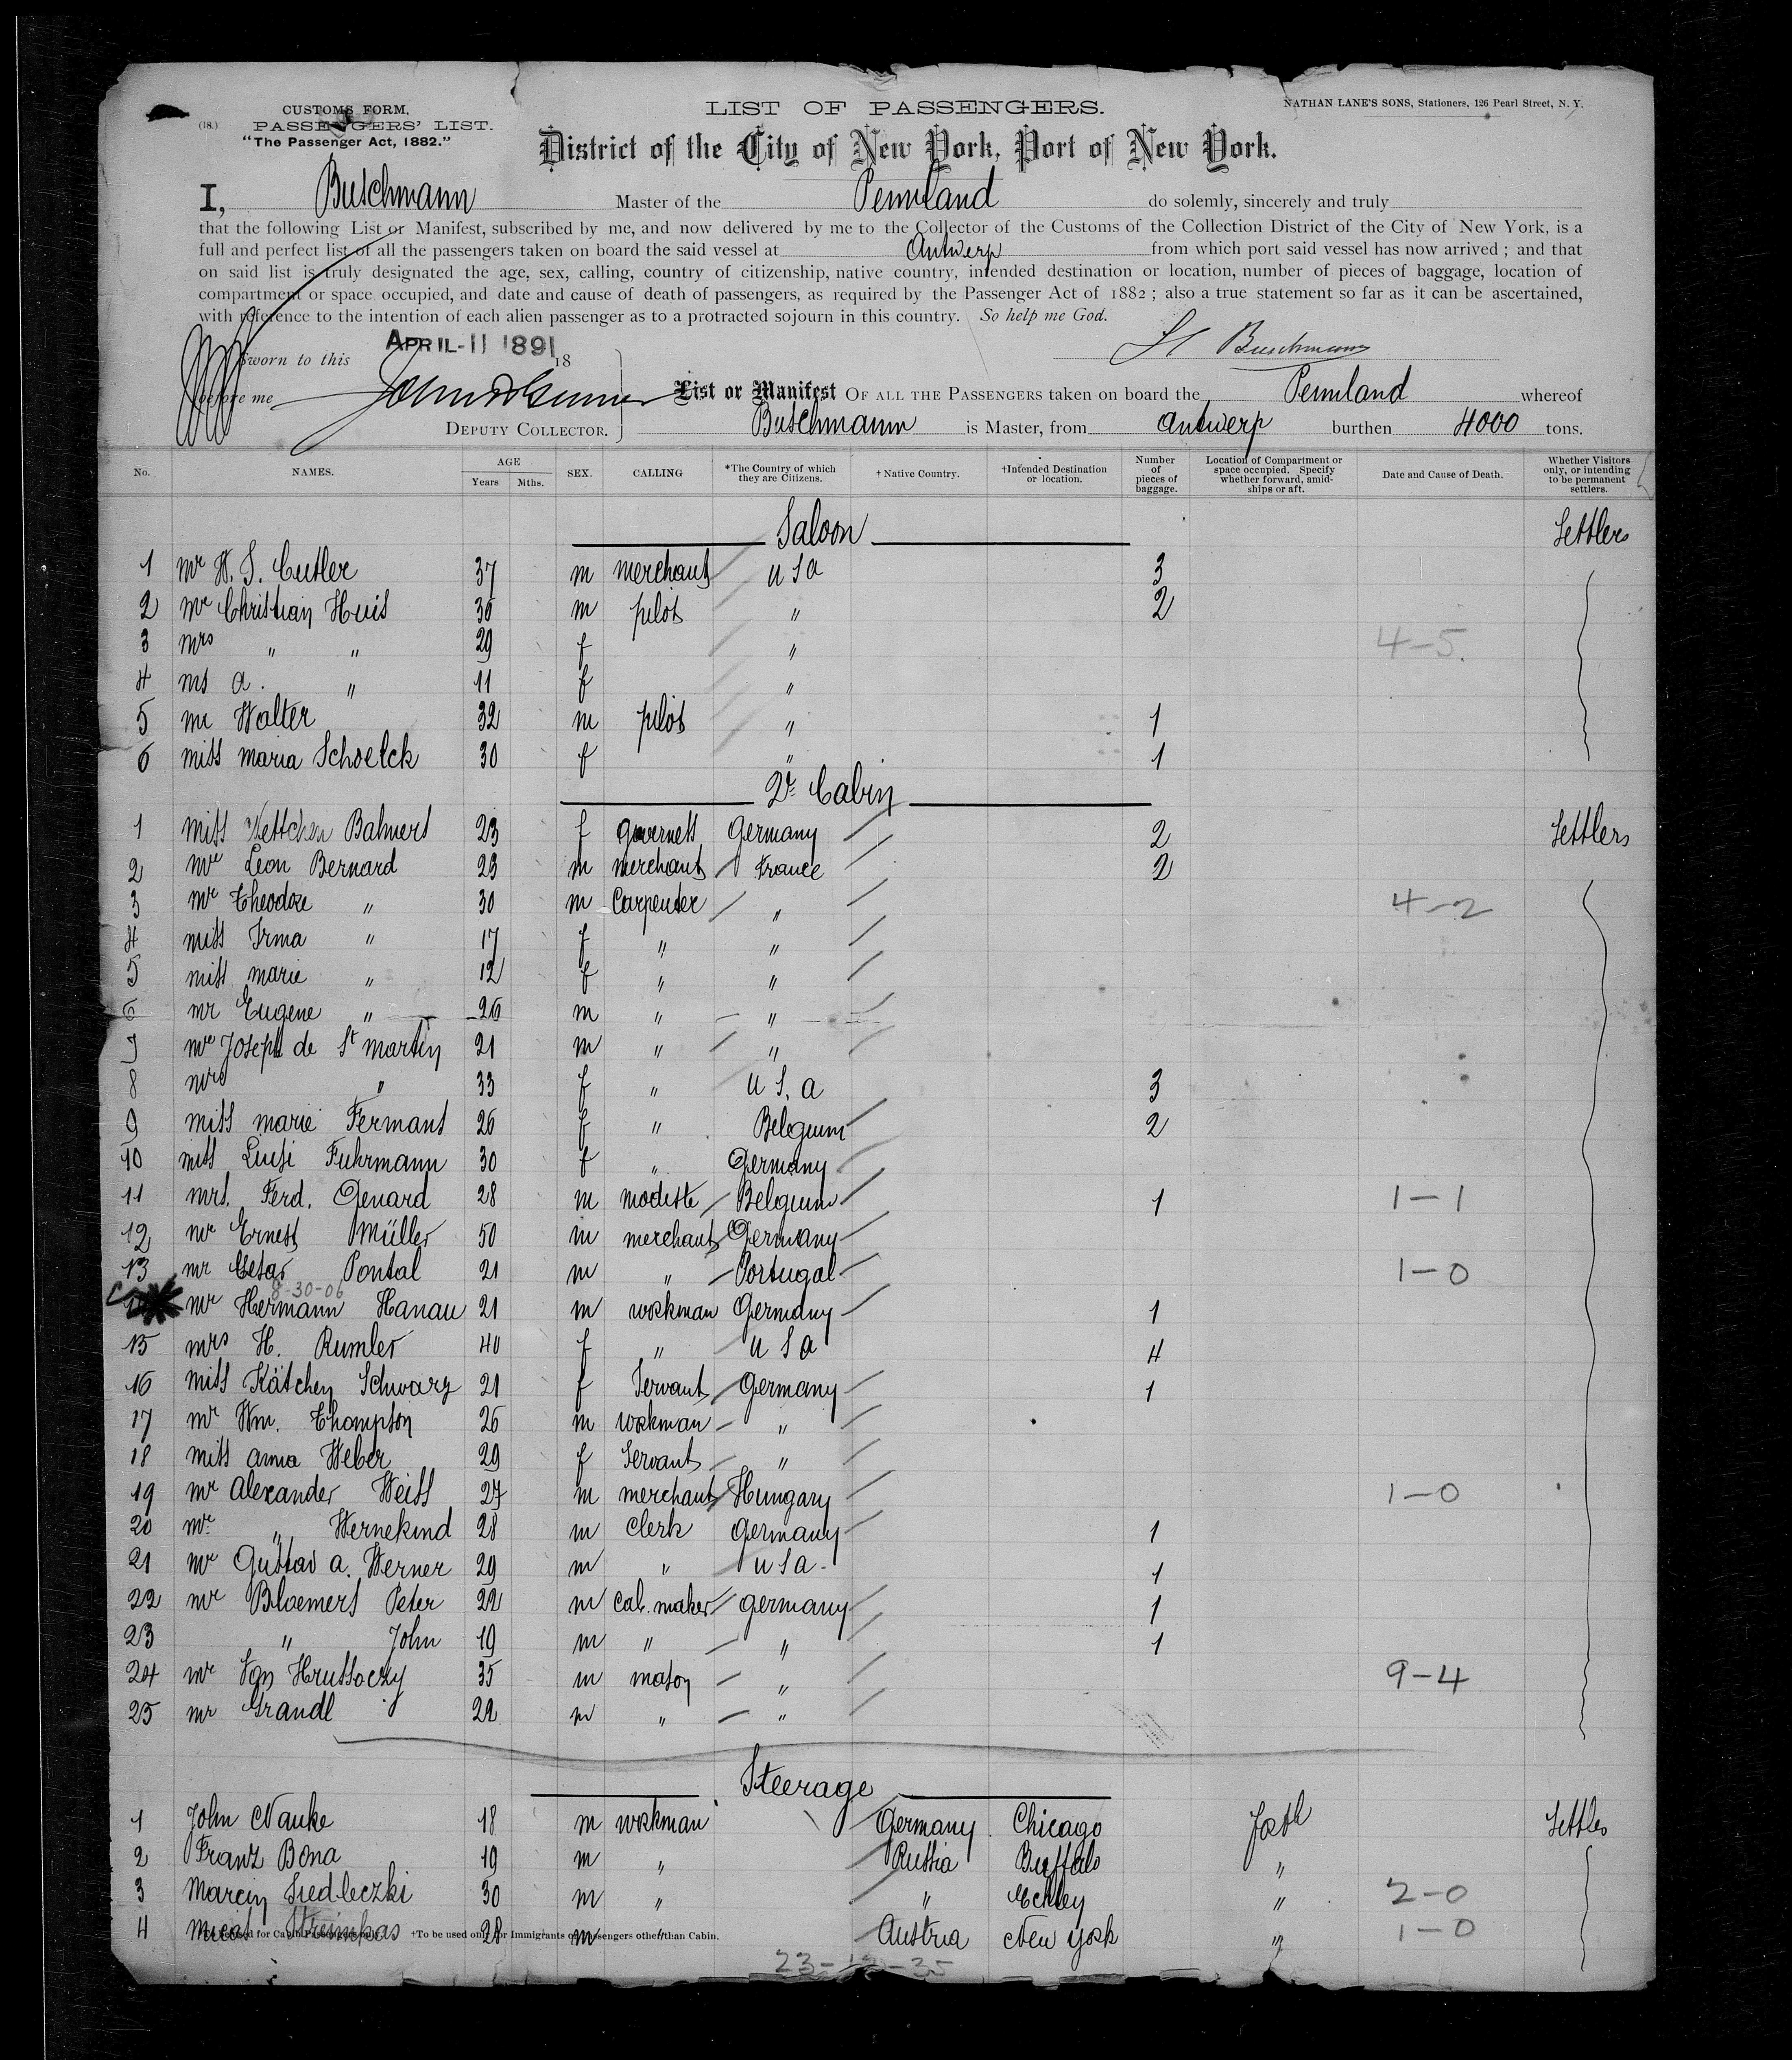 (18.)
CUSTOMS FORM,
PASSENGERS' LIST.
"The Passenger Act, 1882."
LIST OF PASSENGERS.
NATHAN LANE'S SONS, Stationers, 126 Pearl Street, N. Y.
District of the City of New York, Port of New York.
I, Buschmann Master of the Pennland do solemly, sincerely and truly
that the following List or Manifest, subscribed by me, and now delivered by me to the Collector of the Customs of the Collection District of the City of New York, is a
full and perfect list of all the passengers taken on board the said vessel at Antwerp from which port said vessel has now arrived; and that
on said list is truly designated the age, sex, calling, country of citizenship, native country, intended destination or location, number of pieces of baggage, location of
compartment or space occupied, and date and cause of death of passengers, as required by the Passenger Act of 1882; also a true statement so far as it can be ascertained,
with reference to the intention of each alien passenger as to a protracted sojourn in this country. So help me God.
Sworn to this APRIL 11 1891 18
Buschmann
before me
DEPUTY COLLECTOR.
List or Manifest OF ALL THE PASSENGERS taken on board the Pennland whereof
Buschmann is Master, from Antwerp burthen 4000 tons.
No. NAMES. AGE Years Mths. SEX. CALLING *The Country of which they are Citizens. †Native Country. †Intended Destination or location. Number of pieces of baggage. Location of Compartment or space occupied. Specify whether forward, amidships or aft. Date and Cause of Death. Whether Visitors only, or intending to be permanent settlers.
Saloon Settlers
1 Mr H. S. Cutler 37 m merchant USA 3
2 Mr Christian Huis 36 m pilot " 2
3 Mrs " " 29 f " 4-5
4 Ms A. " 11 f "
5 Mr Walter 32 m pilot " 1
6 Miss Maria Schoelck 30 f " 1
2d Cabin
1 Miss Nettchen Balmers 23 f governess Germany 2 Settlers
2 Mr Leon Bernard 23 m merchant France 2
3 Mr Theodore " 30 m Carpenter " 4-2
4 Miss Irma " 17 f " "
5 Miss Marie " 12 f " "
6 Mr Eugene " 26 m " "
7 Mr Joseph de St Martin 21 m " "
8 Mrs " 33 f " U S. A 3
9 Miss Marie Fermant 26 f " Belgium 2
10 Miss Luise Fuhrmann 30 f " Germany
11 Mrs. Ferd. Genard 28 m modiste Belgium 1 1-1
12 Mr Ernest Müller 50 m merchant Germany
13 Mr Cesar Pontal 21 m " Portugal 1-0
8-30-06
Mr Hermann Hanau 21 m workman Germany 1
15 Mrs H. Rumler 40 f " USA 4
16 Miss Kätchen Schwarz 21 f Servant Germany 1
17 Mr Wm. Thompson 26 m workman "
18 Miss Anna Weber 29 f Servant "
19 Mr Alexander Weiss 27 m merchant Hungary 1-0
20 Mr " Wernekind 28 m Clerk Germany 1
21 Mr Gustav A. Werner 29 m " USA 1
22 Mr Bloemers Peter 22 m Cab. maker Germany 1
23 " John 19 m " " 1
24 Mr Hrussoczy 35 m mason " 9-4
25 Mr Grandl 22 m " "
Steerage
1 John Nauke 18 m workman Germany Chicago Forth Settlers
2 Franz Bona 19 m " Russia Buffalo "
3 Marcin Siedleczki 30 m " " Eckley " 2-0
4 28 m " Austria New York " 1-0
†To be used only for Immigrants or Passengers other than Cabin.